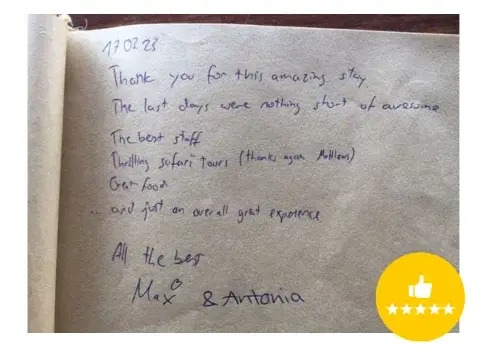 17 03 23
Thank you for this amazing stay
The last days were nothing short of awesome
The best staff
Thrilling safari tours (thanks again
Great food
.. and just an overall great experience
All the best
Max & Antonia